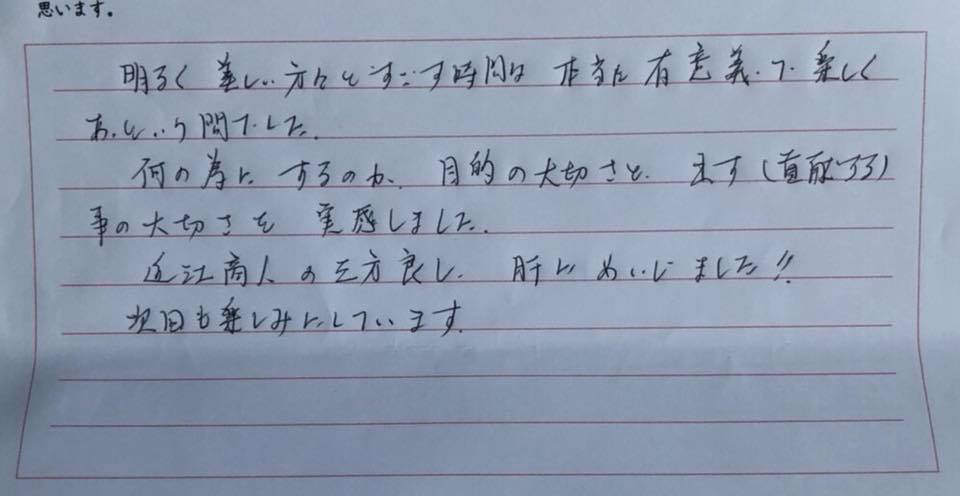 思います。
明るく 美しい方々とすごす時間は 本当に有意義で楽しく
あっという間でした。
何の為に するのか、目的の大切さと、ます(直取する)
事の大切さを 実感しました。
近江商人の三方良し、肝にめいじました!!
次回も楽しみにしています。